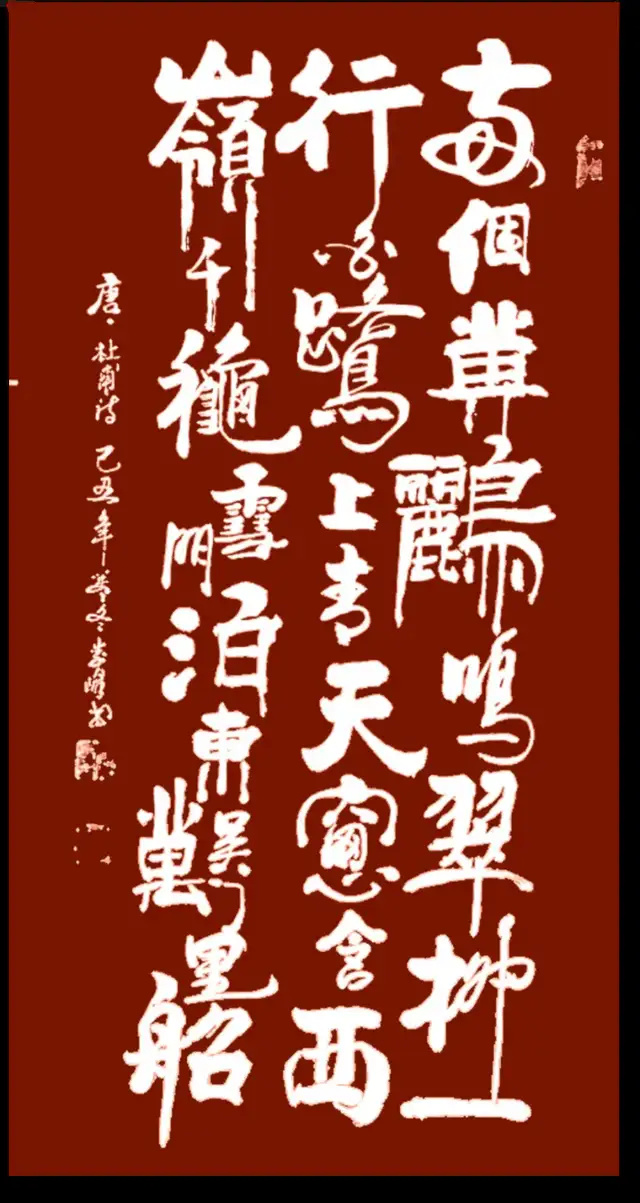 兩個黃鸝鳴翠柳一
行白鷺上青天窻含西
嶺千龝雪門泊東吳萬里船
唐杜甫詩己丑年冬